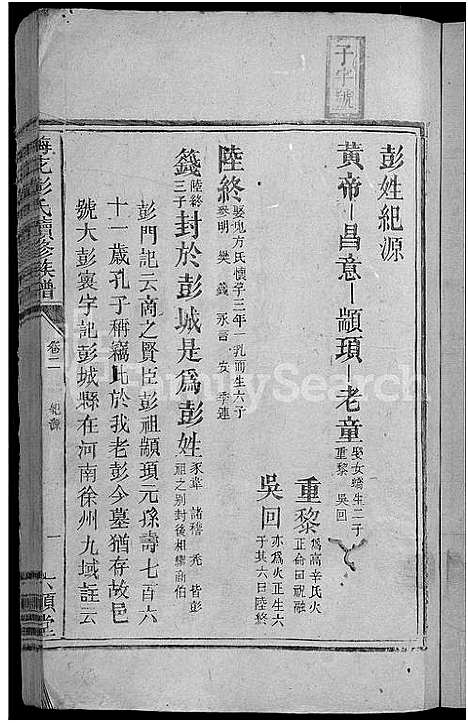 子字號
彭姓紀源
黃帝－昌意－顓頊－老童娶女嬌生二子重黎 吳回
重黎為高辛氏火正命曰祝融
吳回亦為火正生六子其六曰陸終
陸終娶鬼方氏懷孕三年一乳而生六子
參胡 樊 籛 永言 安 季連
籛陸終三子封於彭城是為彭姓豕韋 諸稽 禿 皆彭祖之别封後相繼商伯
彭門記云商之賢臣彭祖顓頊元孫壽七百六
十一歲孔子稱竊比於我老彭今墓猶存故邑
號大彭寰宇記彭城縣在河南徐州九域註云
彭氏續修族譜
卷二
紀源
一
六順堂
FamilySearch